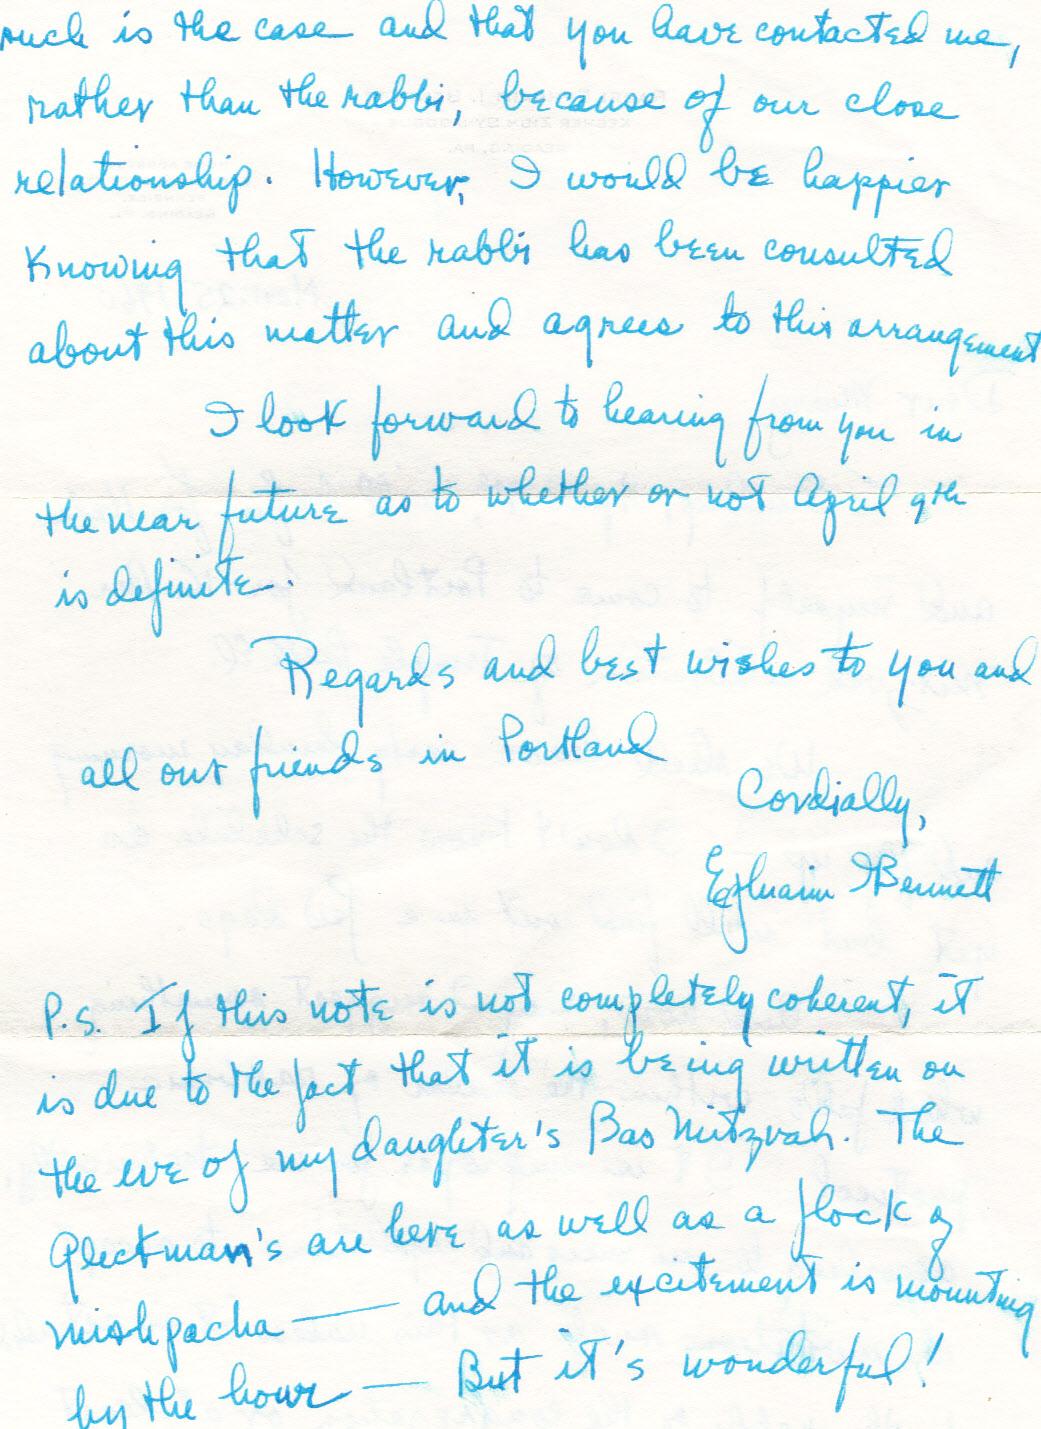 such is the case and that you have contacted me,
rather than the rabbi, because of our close
relationship. However, I would be happier
Knowing that the rabbi has been consulted
about this matter and agrees to this arrangement
I look forward to hearing from you in
the near future as to whether or not April 9th
is definite.
Regards and best wishes to you and
all our friends in Portland
Cordially,
Ephraim I Bennett
P.S. If this note is not completely coherent, it
is due to the fact that it is being written on
the eve of my daughter's Bas Mitzvah. The
Gleckman's are here as well as a flock of
mishpacha — and the excitement is mounting
by the hour — But it's wonderful!